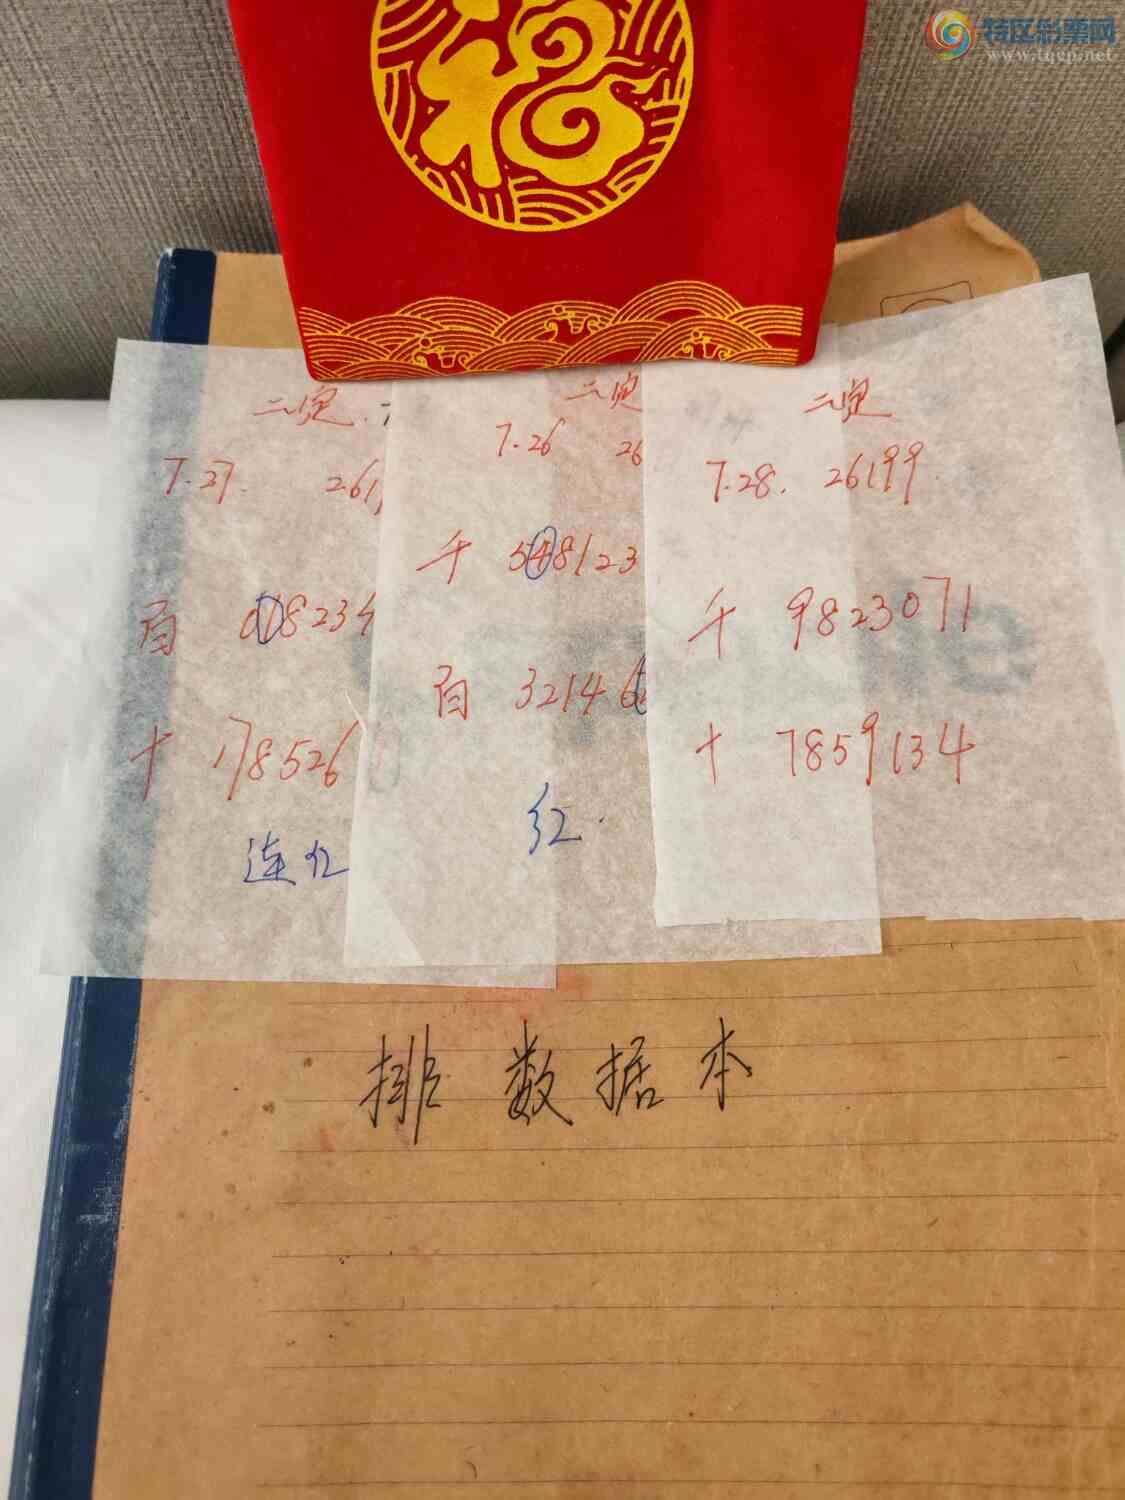 特区彩票网
www.tqcp.net
福
二定
7.27. 261
百 018234
十 178526
连红
二定
7.26 26
千 548123
百 32146
红.
二定
7.28. 26199.
千 9823071
十 7859134
排数据本